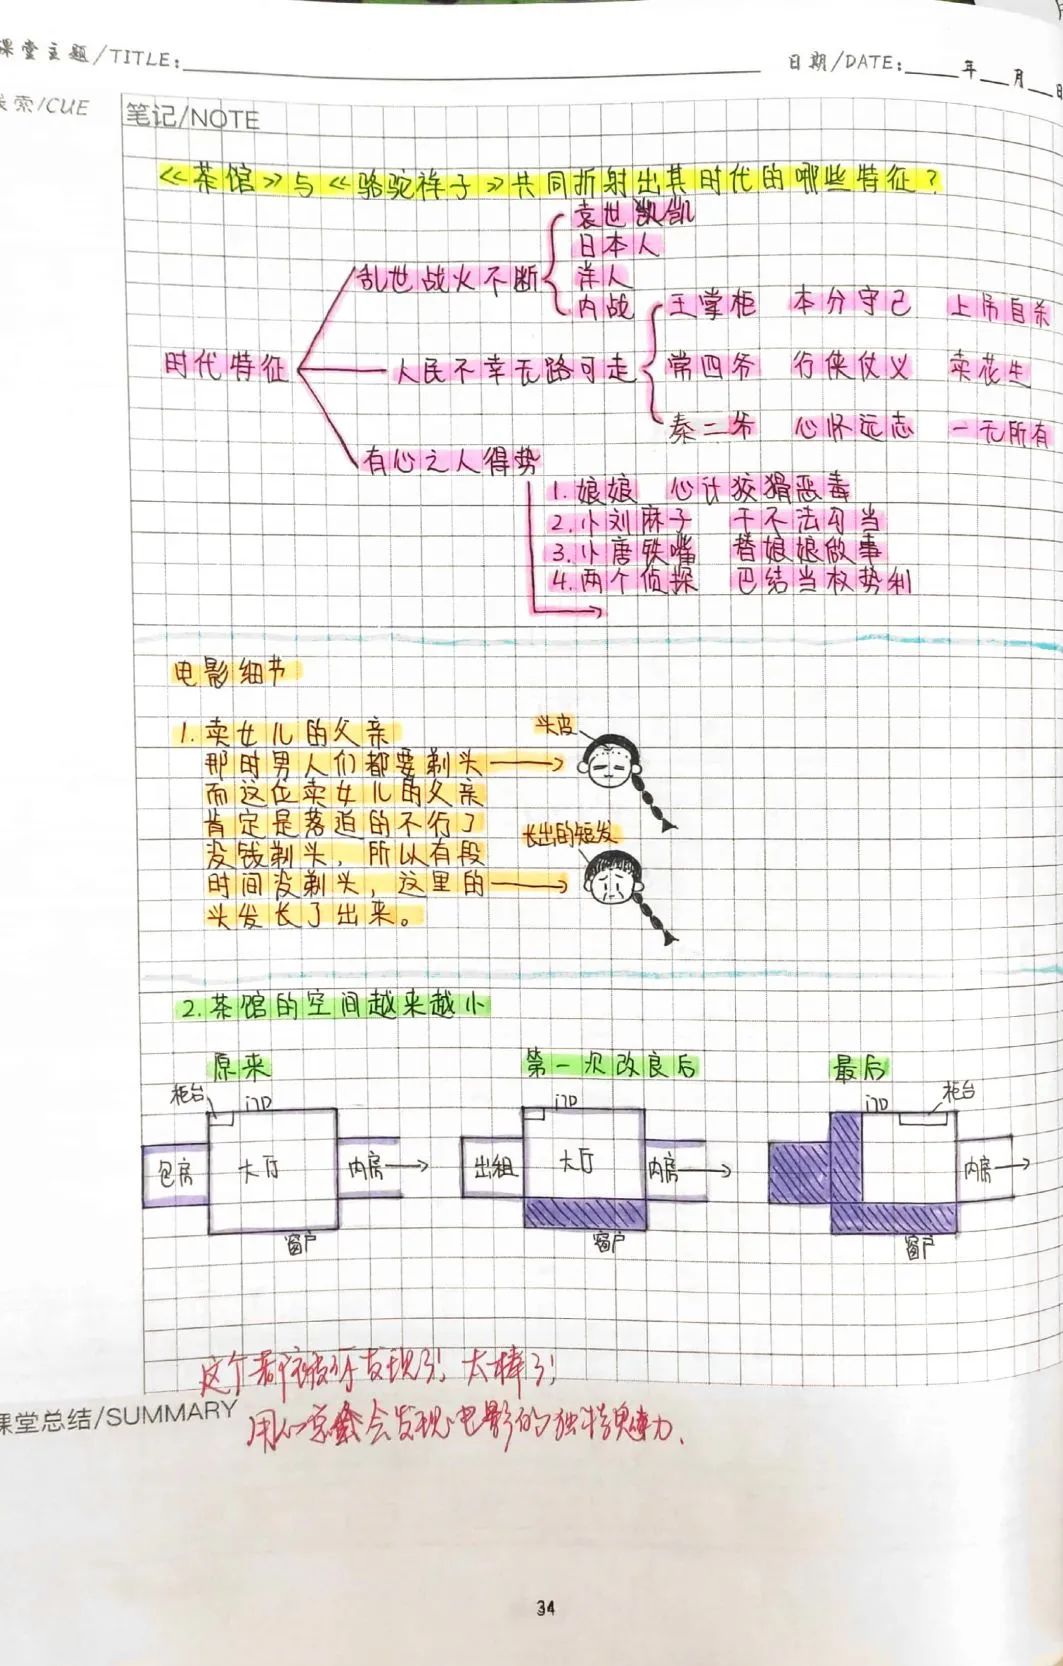 课堂主题/TITLE:
日期/DATE: 年 月
索/CUE
笔记/NOTE
《茶馆》与《骆驼祥子》共同折射出其时代的哪些特征?
时代特征
乱世战火不断
袁世凯
日本人
洋人
内战
人民不幸无路可走
王掌柜 本分守己 上吊自杀
常四爷 行侠仗义 卖花生
秦二爷 心怀远志 一无所有
有心之人得势
1.娘娘 心计狡猾恶毒
2.小刘麻子 干不法勾当
3.小唐铁嘴 替娘娘做事
4.两个侦探 巴结当权势利
电影细节
1.卖女儿的父亲
那时男人们都要剃头
而这位卖女儿的父亲
肯定是落迫的不行了
没钱剃头,所以有段
时间没剃头,这里的
头发长了出来。
头皮
长出的短发
2.茶馆的空间越来越小
原来
柜台
门口
包房
大厅
内房
窗户
第一次改良后
门口
出租
大厅
内房
窗户
最后
门口
柜台
内房
窗户
这个都被你发现了!太棒了!
用心会发现电影的独特魅力.
课堂总结/SUMMARY
34